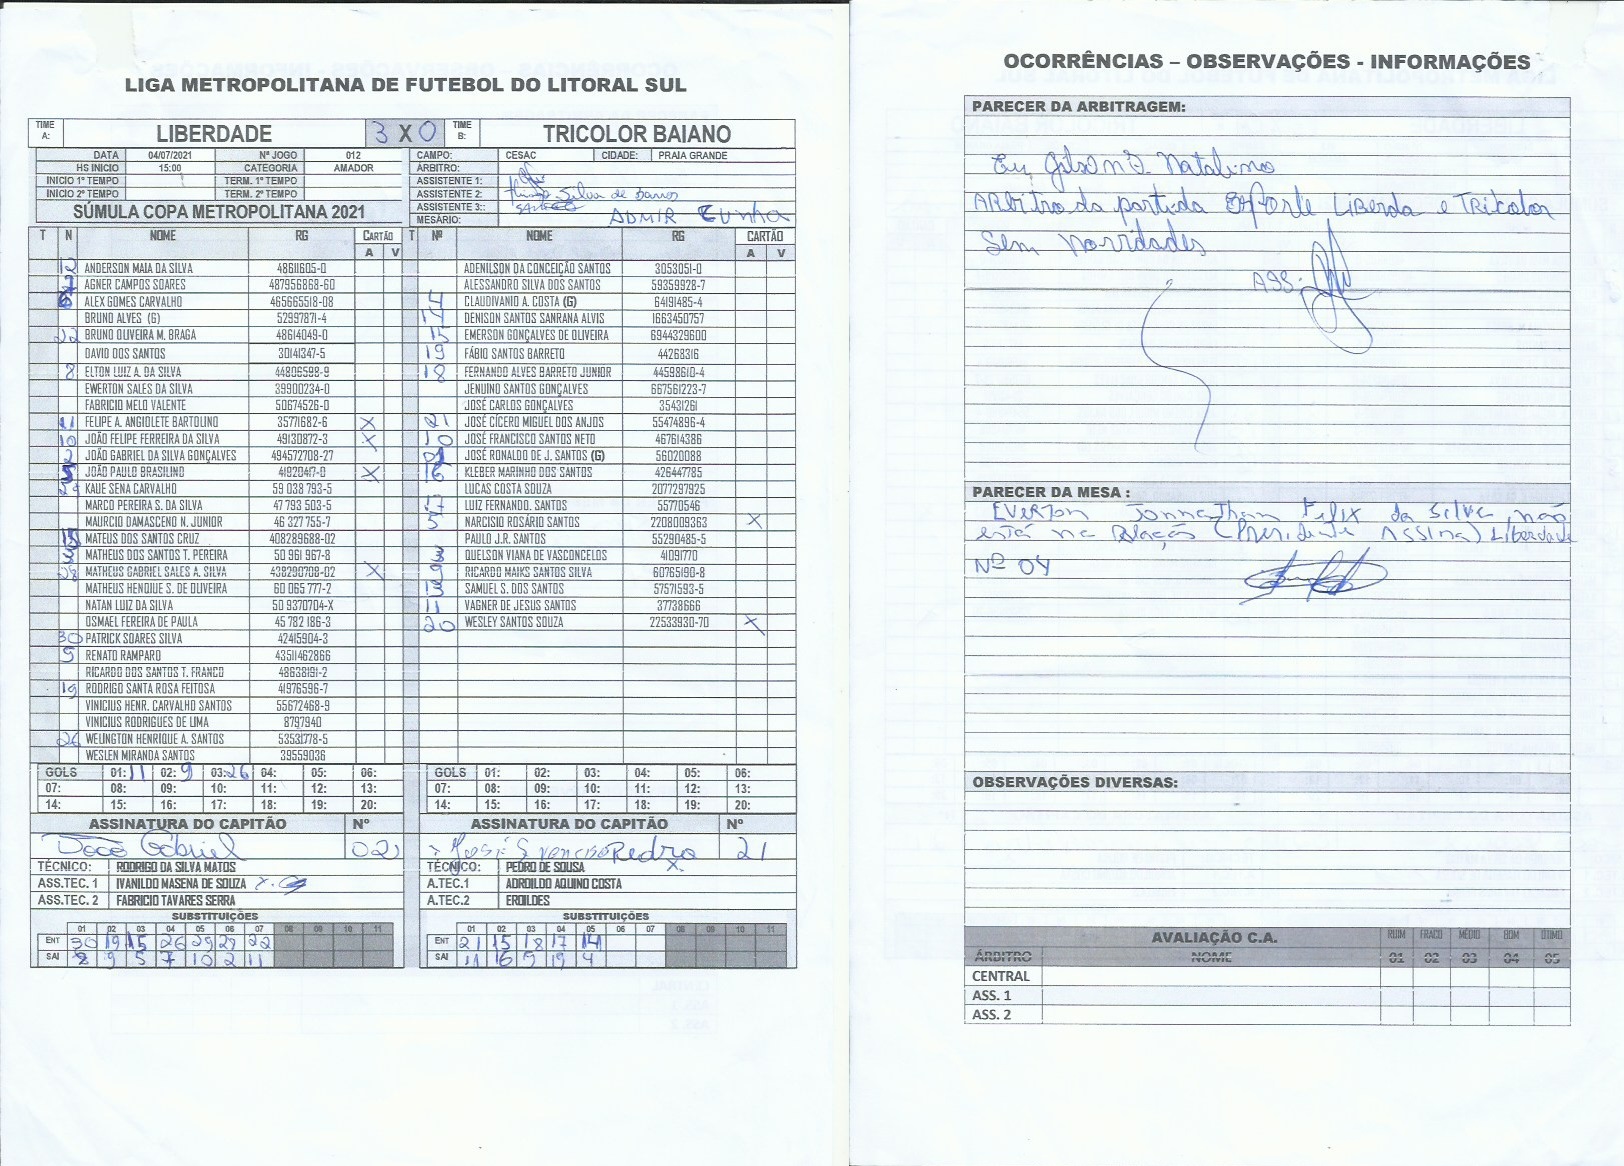 LIGA METROPOLITANA DE FUTEBOL DO LITORAL SUL
TIME A: LIBERDADE 3 X 0 TIME B: TRICOLOR BAIANO
DATA 04/07/2021 Nº JOGO 012 CAMPO: CESAC CIDADE: PRAIA GRANDE
HS INICIO 15:00 CATEGORIA AMADOR ÁRBITRO:
INICIO 1º TEMPO TERM. 1º TEMPO ASSISTENTE 1:
INICIO 2º TEMPO TERM. 2º TEMPO ASSISTENTE 2: Silva de barros
SÚMULA COPA METROPOLITANA 2021 ASSISTENTE 3::
MESÁRIO: ADMIR CUNHA
T N NOME RG CARTÃO T Nº NOME RG CARTÃO
A V A V
12 ANDERSON MAIA DA SILVA 48611605-0 ADENILSON DA CONCEIÇÃO SANTOS 3053051-0
AGNER CAMPOS SOARES 487956868-60 ALESSANDRO SILVA DOS SANTOS 59359928-7
ALEX GOMES CARVALHO 465665518-08 4 CLAUDIVANIO A. COSTA (G) 64191485-4
BRUNO ALVES (G) 52997871-4 14 DENISON SANTOS SANRANA ALVIS 1663450757
22 BRUNO OLIVEIRA M. BRAGA 48614049-0 15 EMERSON GONÇALVES DE OLIVEIRA 6944329600
DAVID DOS SANTOS 30141347-5 19 FÁBIO SANTOS BARRETO 44268316
8 ELTON LUIZ A. DA SILVA 44806598-9 18 FERNANDO ALVES BARRETO JUNIOR 44598610-4
EWERTON SALES DA SILVA 39900234-0 JENUINO SANTOS GONÇALVES 667561223-7
FABRICIO MELO VALENTE 50674526-0 JOSÉ CARLOS GONÇALVES 35431261
11 FELIPE A. ANGIOLETE BARTOLINO 35771682-6 X 21 JOSÉ CÍCERO MIGUEL DOS ANJOS 55474896-4
10 JOÃO FELIPE FERREIRA DA SILVA 49130872-3 X 10 JOSÉ FRANCISCO SANTOS NETO 467614386
2 JOÃO GABRIEL DA SILVA GONÇALVES 494572708-27 01 JOSÉ RONALDO DE J. SANTOS (G) 56020088
5 JOÃO PAULO BRASILINO 41920417-0 X 16 KLEBER MARINHO DOS SANTOS 426447785
29 KAUE SENA CARVALHO 59 038 793-5 LUCAS COSTA SOUZA 2077297925
MARCO PEREIRA S. DA SILVA 47 793 503-5 17 LUIZ FERNANDO. SANTOS 55770546
MAURCIO DAMASCENO N. JUNIOR 46 327 755-7 5 NARCISIO ROSÁRIO SANTOS 2208009363 X
15 MATEUS DOS SANTOS CRUZ 408289688-02 PAULO J.R. SANTOS 55290485-5
3 MATHEUS DOS SANTOS T. PEREIRA 50 961 967-8 3 QUELSON VIANA DE VASCONCELOS 41091770
28 MATHEUS GABRIEL SALES A. SILVA 438290708-02 X 9 RICARDO MAIKS SANTOS SILVA 60765190-8
MATHEUS HENQIUE S. DE OLIVEIRA 60 065 777-2 13 SAMUEL S. DOS SANTOS 57571593-5
NATAN LUIZ DA SILVA 50 9370704-X 11 VAGNER DE JESUS SANTOS 37738666
OSMAEL FEREIRA DE PAULA 45 782 186-3 20 WESLEY SANTOS SOUZA 22533930-70 X
30 PATRICK SOARES SILVA 42415904-3
9 RENATO RAMPARO 43511462866
RICARDO DOS SANTOS T. FRANCO 48638191-2
19 RODRIGO SANTA ROSA FEITOSA 41976596-7
VINICIUS HENR. CARVALHO SANTOS 55672468-9
VINICIUS RODRIGUES DE LIMA 8797940
26 WELINGTON HENRIQUE A. SANTOS 53531778-5
WESLEN MIRANDA SANTOS 39559036
GOLS 01: 11 02: 9 03: 26 04: 05: 06: GOLS 01: 02: 03: 04: 05: 06:
07: 08: 09: 10: 11: 12: 13: 07: 08: 09: 10: 11: 12: 13:
14: 15: 16: 17: 18: 19: 20: 14: 15: 16: 17: 18: 19: 20:
ASSINATURA DO CAPITÃO Nº ASSINATURA DO CAPITÃO Nº
João Gabriel 021 Pedro 21
TÉCNICO: RODRIGO DA SILVA MATOS TÉCNICO: PEDRO DE SOUSA X
ASS.TEC. 1 IVANILDO MASENA DE SOUZA A.TEC.1 ADROILDO AQUINO COSTA
ASS.TEC. 2 FABRICIO TAVARES SERRA A.TEC.2 EROILDES
SUBSTITUIÇÕES SUBSTITUIÇÕES
01 02 03 04 05 06 07 08 09 10 11 01 02 03 04 05 06 07 08 09 10 11
ENT 30 19 15 26 29 28 22 ENT 21 15 18 17 14
SAI 8 9 5 7 10 2 11 SAI 11 16 9 19 4
OCORRÊNCIAS – OBSERVAÇÕES - INFORMAÇÕES
PARECER DA ARBITRAGEM:
Eu, Gilson D. Natalino
ARbitro da partida Esporte LIBERDA e TRicolor
Sem Novidades
ASS:
PARECER DA MESA :
EVERTON Jonnathan Felix da Silva, não
está na Relação (Presidente Assina) Liberdade
Nº 04
OBSERVAÇÕES DIVERSAS:
AVALIAÇÃO C.A. RUIM FRACO MÉDIO BOM ÓTIMO
ÁRBITRO NOME 01 02 03 04 05
CENTRAL
ASS. 1
ASS. 2